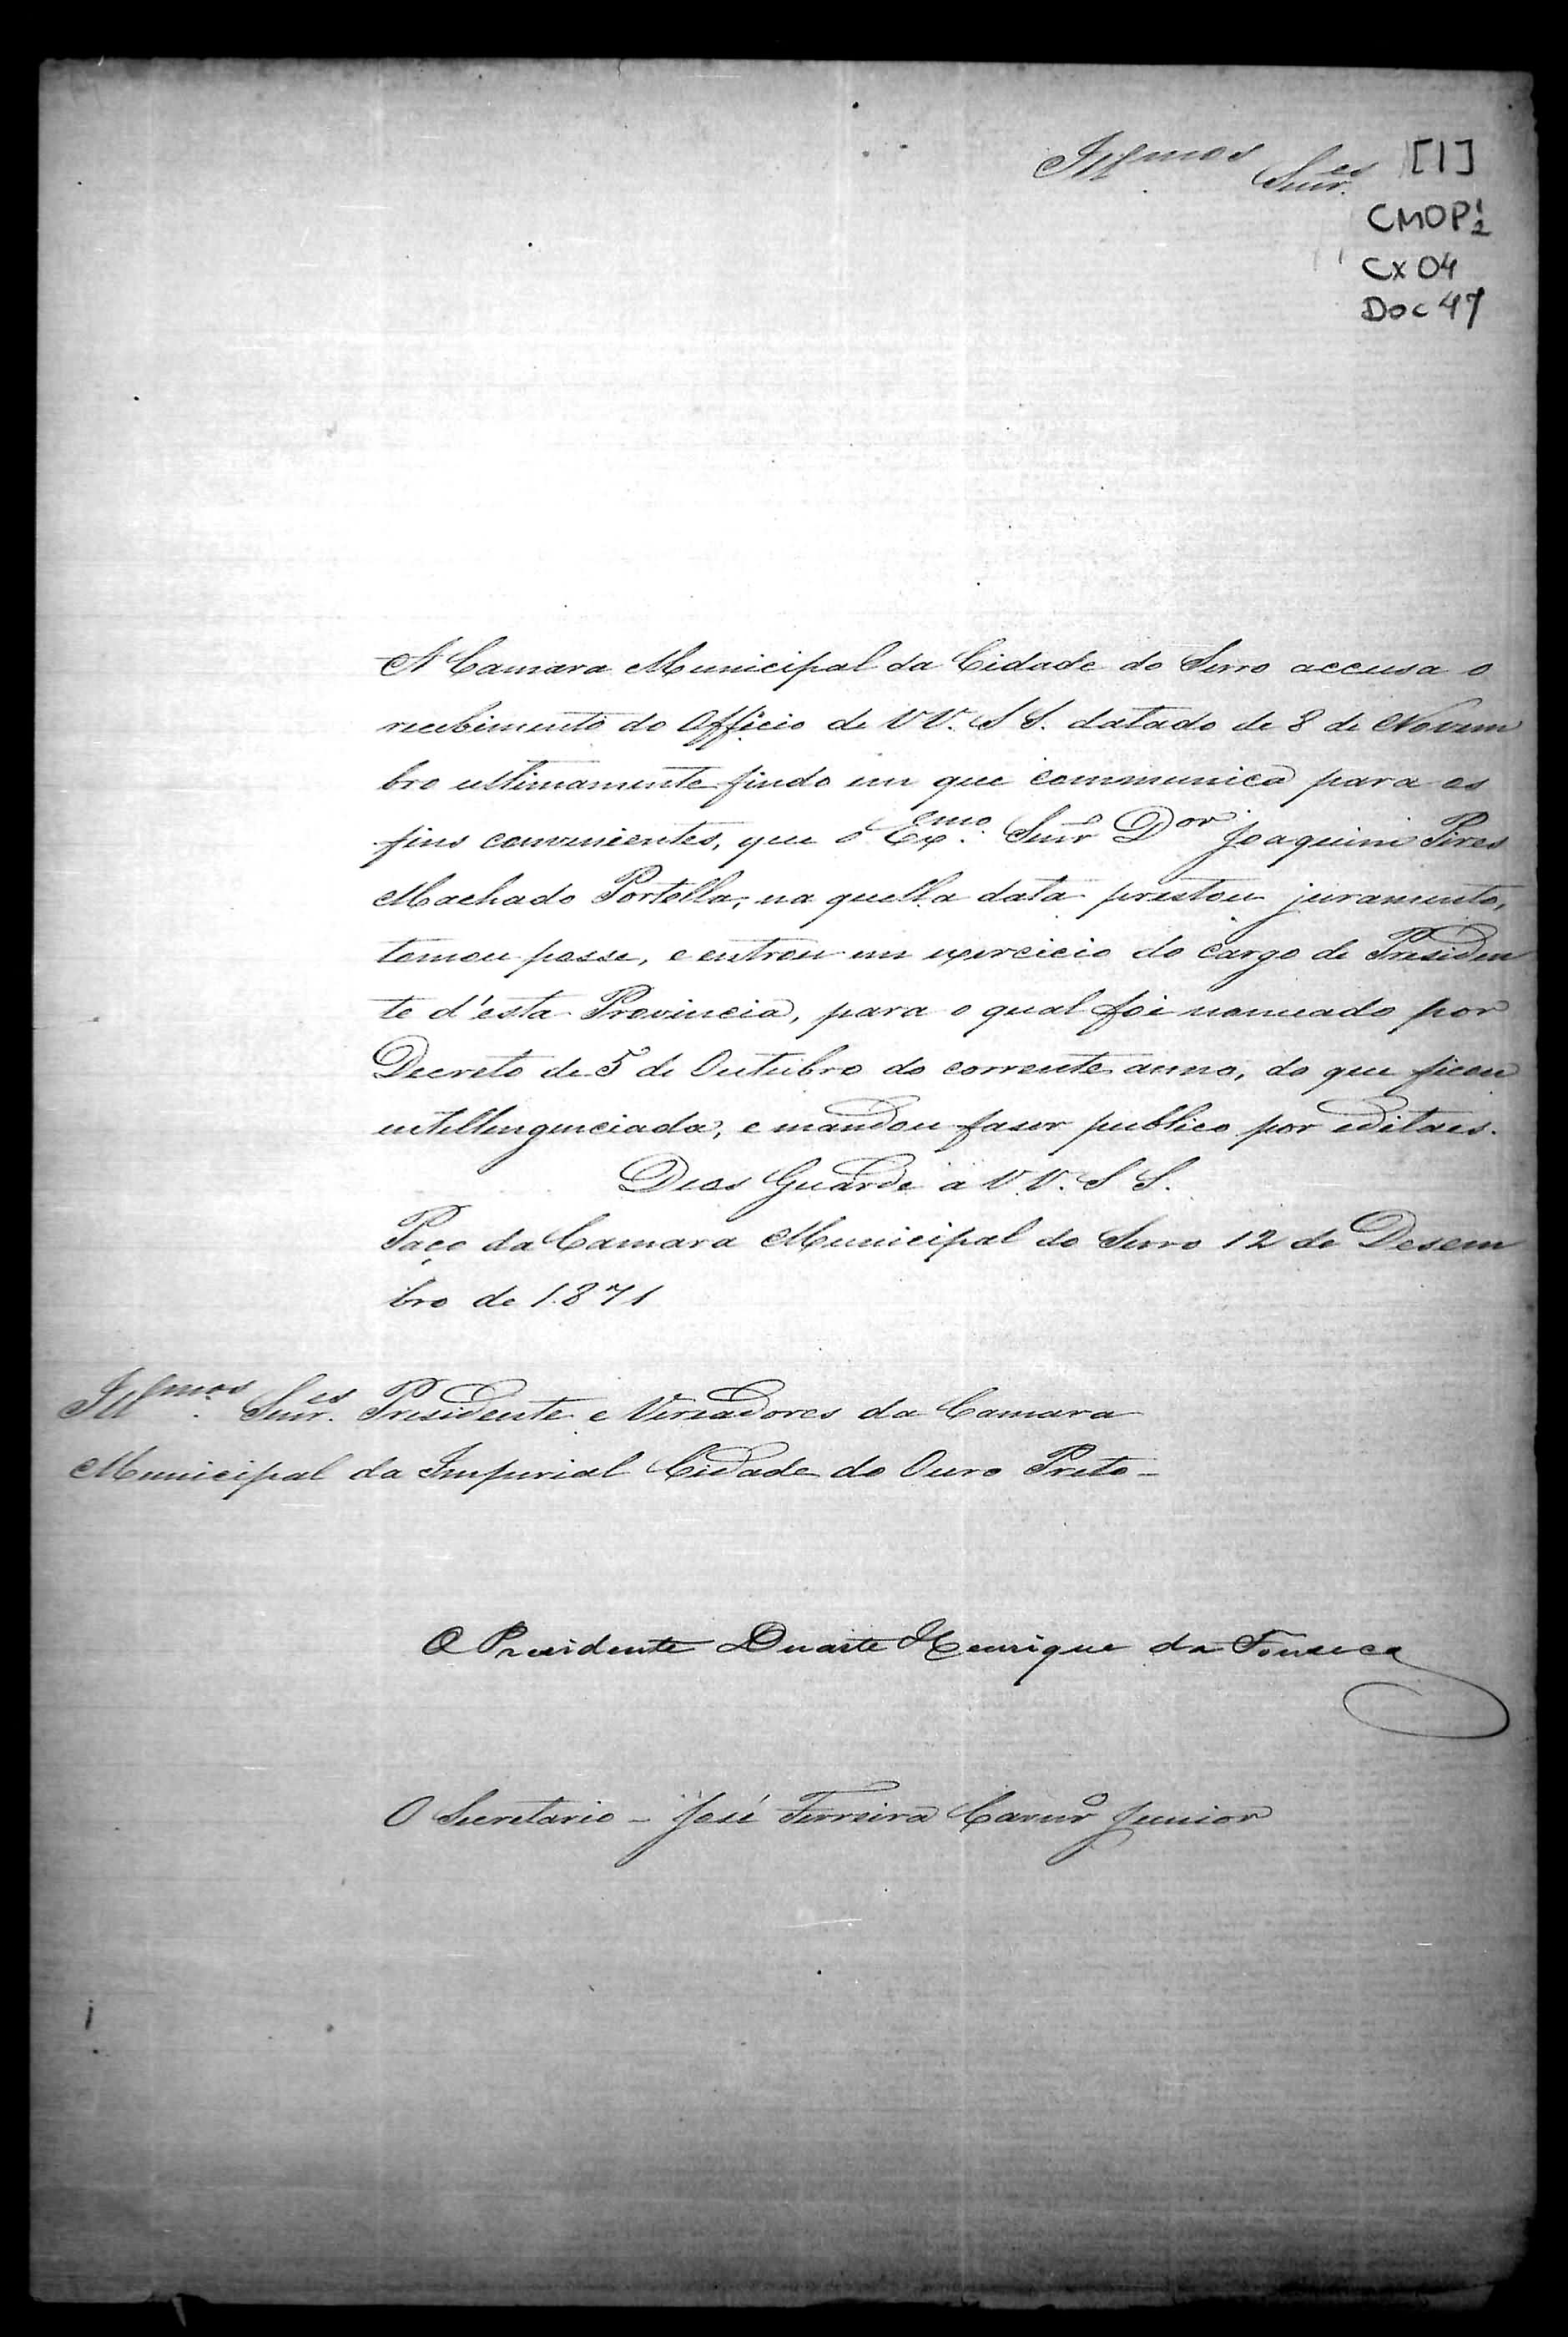 Illmos Snres
[1]
CMOP 1/2
Cx 04
Doc 47
A Camara Municipal da Cidade do Serro accusa o
recebimento do Officio de VV. SS. datado de 8 de Novem
bro ultimamente findo em que communica para os
fins convenientes, que o Exmo. Snr Dor Joaquim Pires
Machado Portella, na quella data prestou juramento,
tomou posse, e entrou em exercicio do cargo de Presiden
te d'esta Provincia, para o qual foi nomeado por
Decreto de 5 de Outubro do corrente anno, do que ficou
intellengenciada, e mandou faser publico por editaes.
Deos Guarde a V.V. SS.
Paço da Camara Municipal do Serro 12 de Desem
bro de 1871
Illmos. Snres. Presidente e Vereadores da Camara
Municipal da Imperial Cidade do Ouro Preto -
O Presidente Duarte Henrique da Fonseca
O Secretario - José Ferreira Carnro Junior